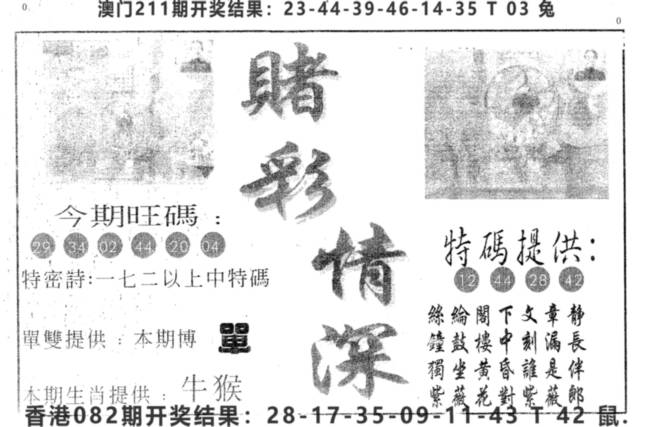 澳门211期开奖结果：23-44-39-46-14-35 T 03 兔
賭彩情深
今期旺碼：
29 34 02 44 20 04
特密詩:一七二以上中特碼
單雙提供：本期博 單
本期生肖提供：牛猴
特碼提供：
12 44 28 42
絲綸閣下文章靜
鐘鼓樓中刻漏長
獨坐黃昏誰是伴
紫薇花對紫薇郎
香港082期开奖结果：28-17-35-09-11-43 T 42 鼠.